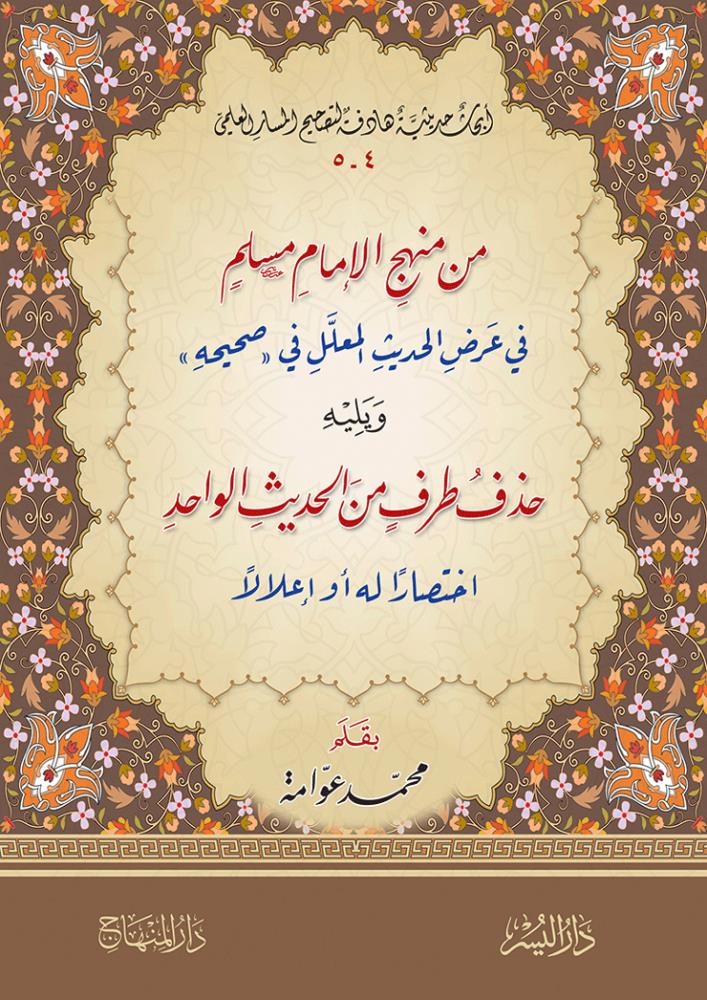 أبحاثٌ حديثيَّةٌ هادفةٌ لتصحيح المسار العلميّ
٤ - ٥
من منهجِ الإمامِ مسلمٍ
في عَرضِ الحديثِ المعلَّلِ في «صحيحهِ»
وَيَلِيْهِ
حذفُ طرفٍ منَ الحديثِ الواحدِ
اختصارًا له أو إعلالاً
بقَلَم
محمّد عوّامة
دَارُ اليُسْر
دَارُ المِنْهَاج